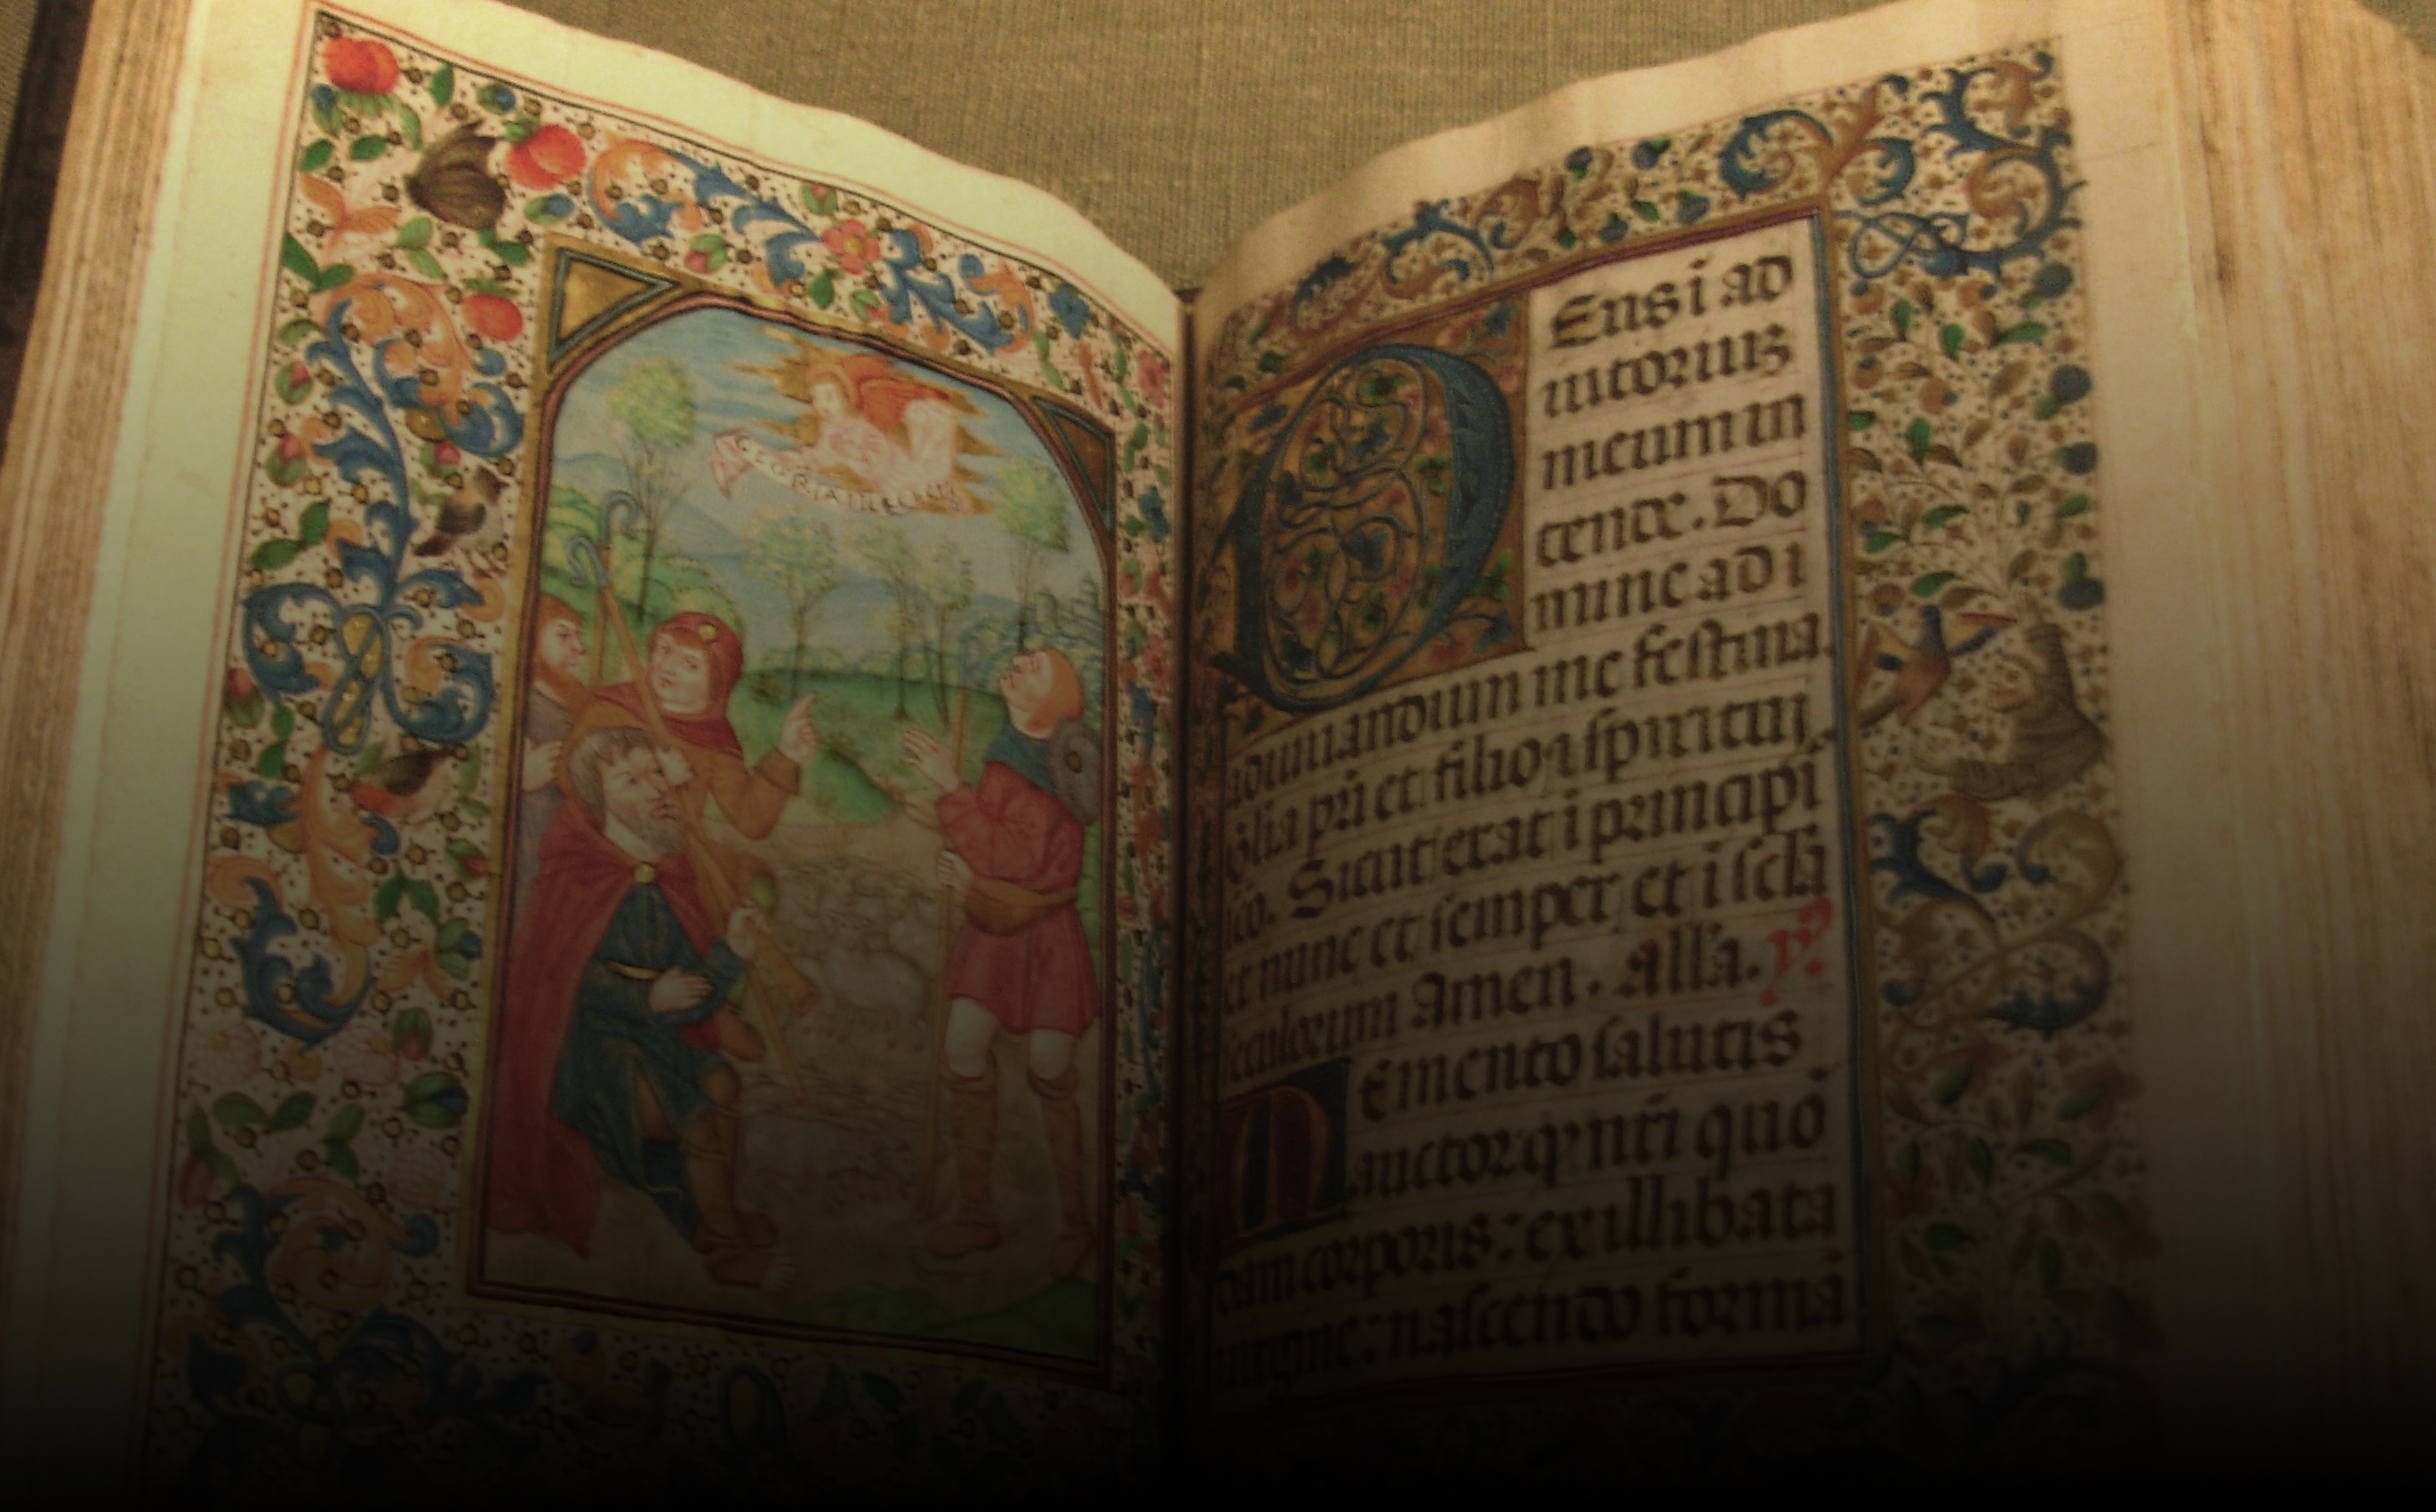 GLORIA IN EXCELSIS
Deus i ad
iutoriuʒ
meum in
tende. Do
mine ad i
adiuuandum me festina.
Gl̄ia pr̄i et filio ⁊ spiritui
sc̄o. Sicut erat i principi
et nunc et semper et i sc̄la
seculorum Amen. All̄a. v̄.
Memento salutis
auctor qͥ nr̄i quō
dam corporis: ex illibata
uirgine: nascendo formā